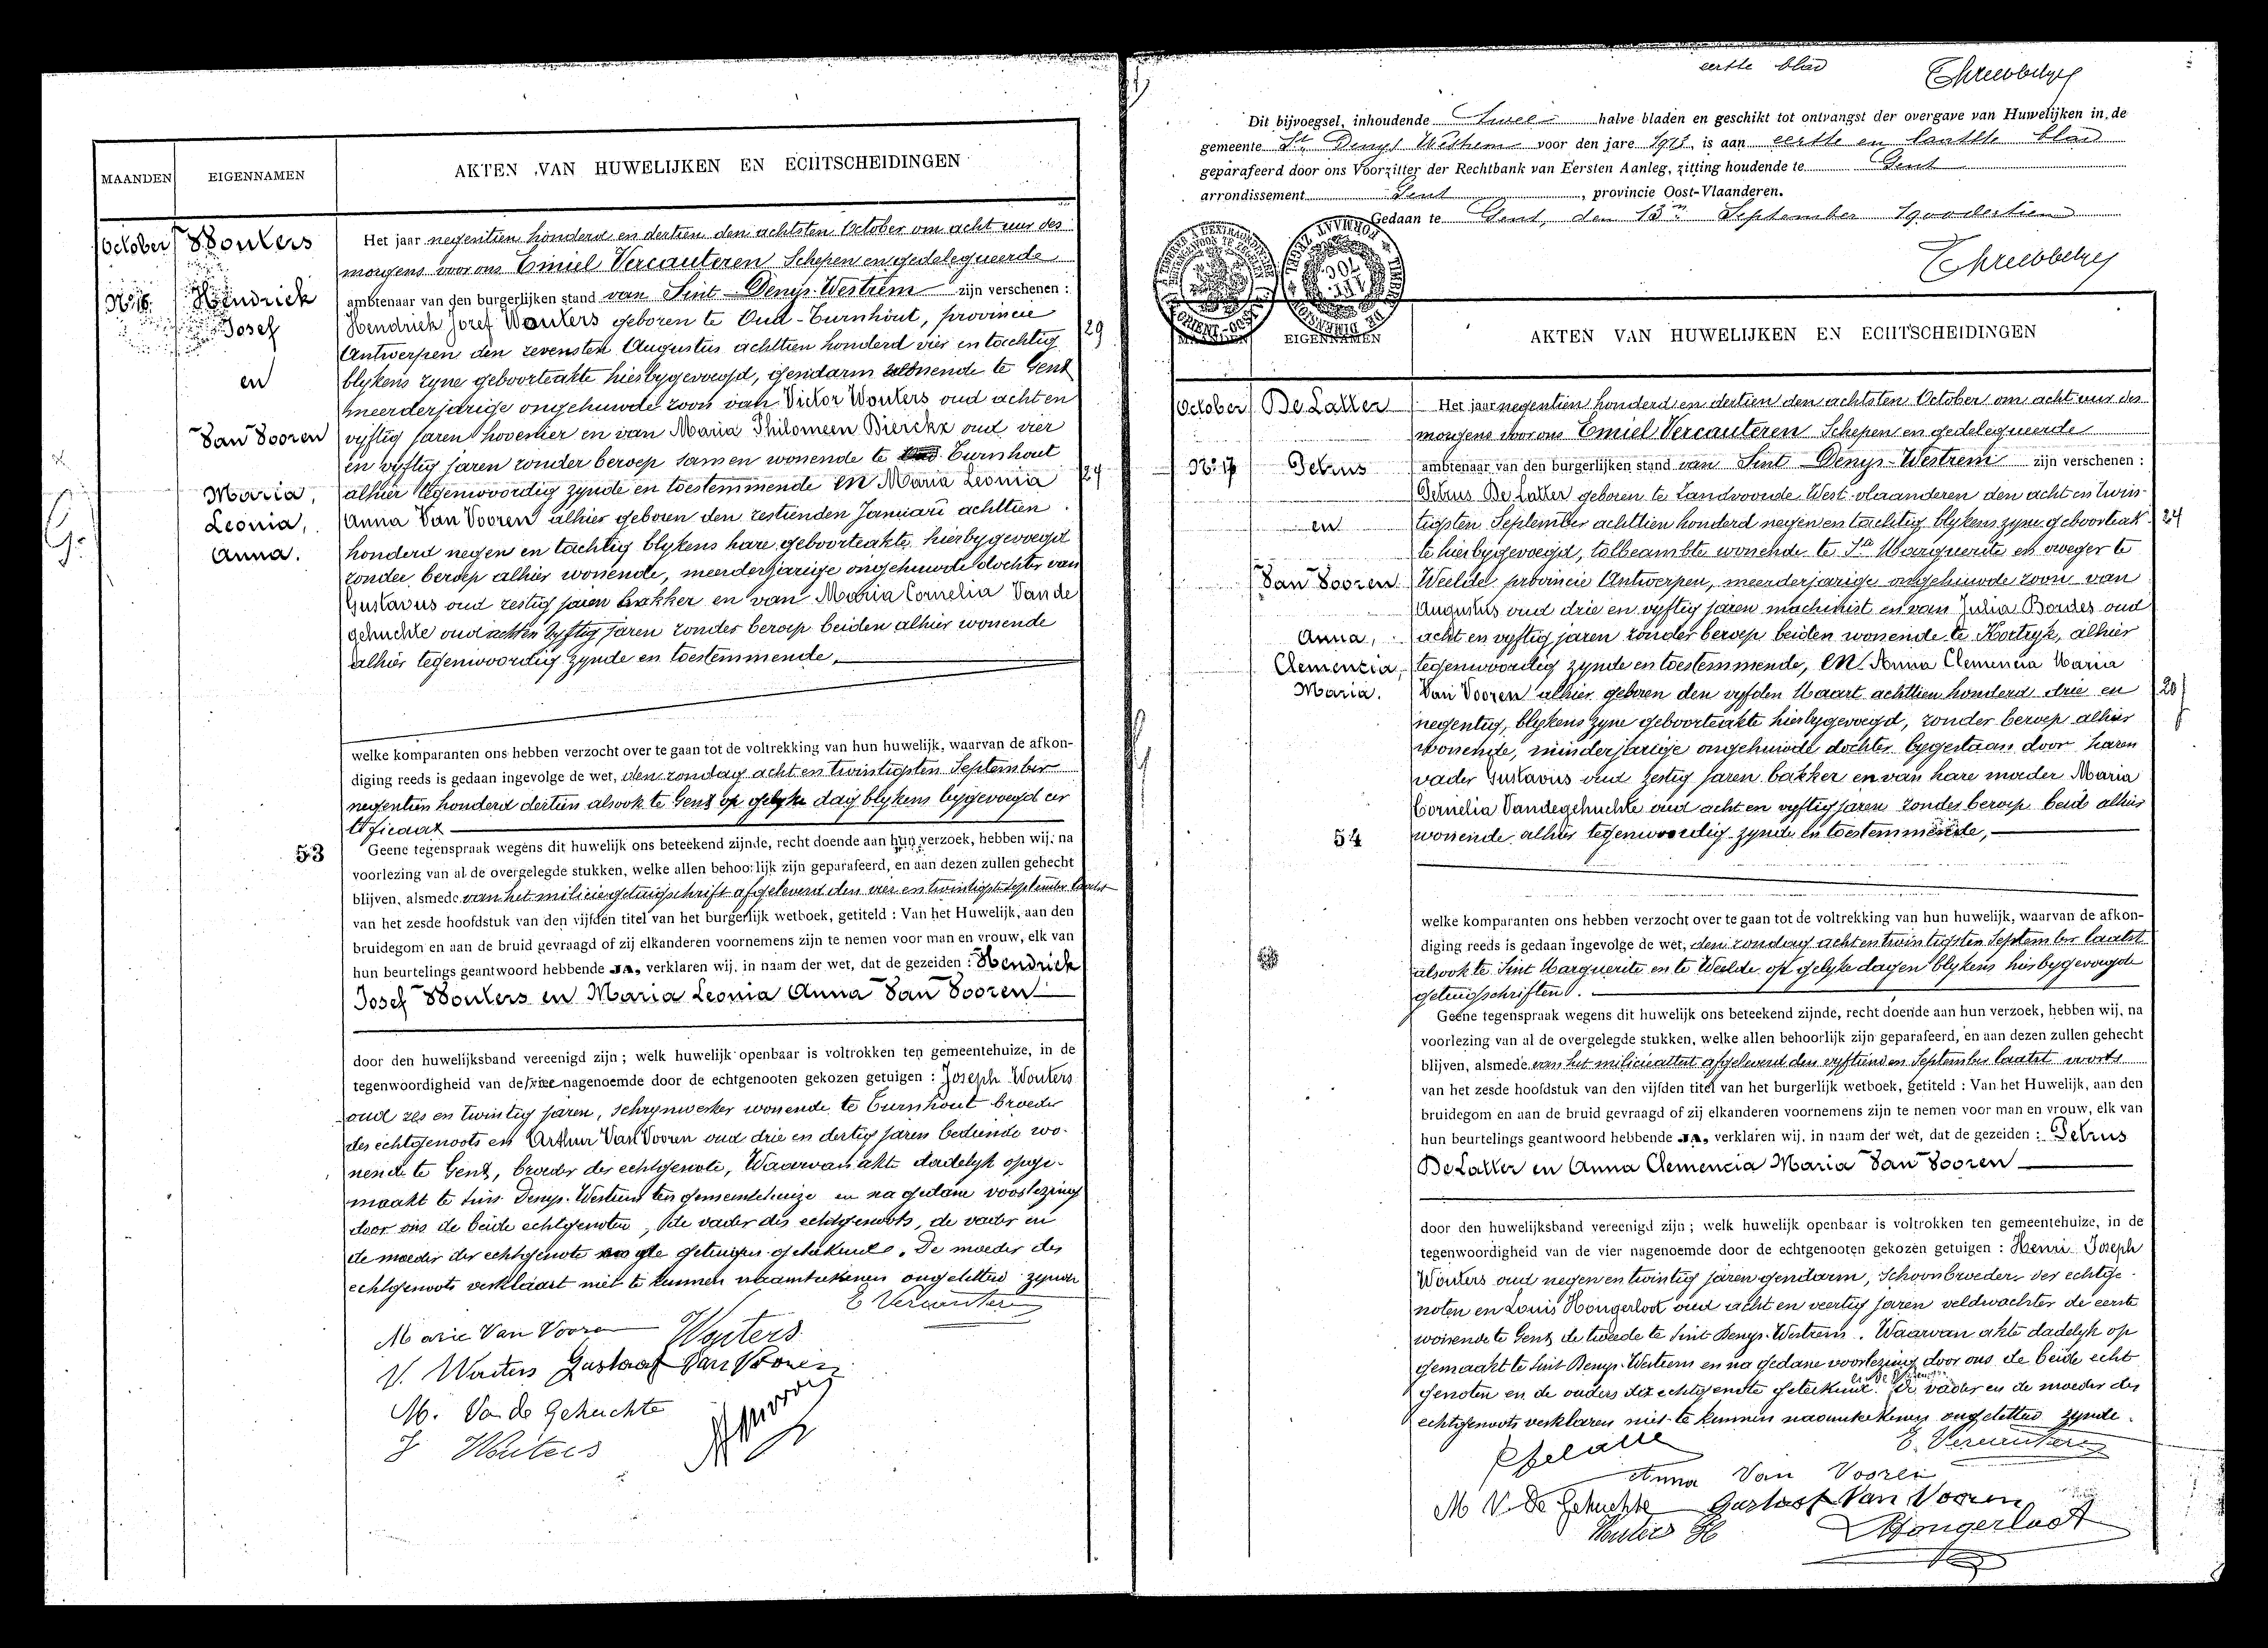 MAANDEN
EIGENNAMEN
AKTEN VAN HUWELIJKEN EN ECHTSCHEIDINGEN
October
Wouters
No 16
Hendrick
Josef
en
Van Vooren
Maria,
Leonia,
Anna.
Het jaar negentien honderd en dertien den achtsten October om acht uur des
morgens voor ons Emiel Vercauteren Schepen en gedelegueerde
ambtenaar van den burgerlijken stand van Sint-Denys-Westrem zijn verschenen :
Hendrick Jozef Wouters geboren te Oud-Turnhout, provincie
29
Antwerpen den zevensten Augustus achttien honderd vier en tachtig
blykens zyne geboorteakte hierbygevoegd, gendarm wonende te Gent
meerderjarige ongehuwde zoon van Victor Wouters oud acht en
vyftig jaren hovenier en van Maria Philomeen Bierckx oud vier
en vyftig jaren zonder beroep samen wonende te Turnhout
alhier tegenwoordig zynde en toestemmende en Maria Leonia
24
Anna Van Vooren alhier geboren den zestienden Januari achttien
honderd negen en tachtig blykens hare geboorteakte hierbygevoegd
zonder beroep alhier wonende, meerderjarige ongehuwde dochter van
Gustavus oud zestig jaren bakker en van Maria Cornelia Vande
gehuchte oud acht en vyftig jaren zonder beroep beiden alhier wonende
alhier tegenwoordig zynde en toestemmende,
welke komparanten ons hebben verzocht over te gaan tot de voltrekking van hun huwelijk, waarvan de afkon-
diging reeds is gedaan ingevolge de wet, den zondag acht en twintigsten September
negentien honderd dertien alsook te Gent op gelyke dag blykens bygevoegd cer
tificaat
53
Geene tegenspraak wegens dit huwelijk ons beteekend zijnde, recht doende aan hun verzoek, hebben wij, na
voorlezing van al de overgelegde stukken, welke allen behoorlijk zijn geparafeerd, en aan dezen zullen gehecht
blijven, alsmede van het miliciegetuigschrift afgeleverd den vier en twintigste September laatst
van het zesde hoofdstuk van den vijfden titel van het burgerlijk wetboek, getiteld : Van het Huwelijk, aan den
bruidegom en aan de bruid gevraagd of zij elkanderen voornemens zijn te nemen voor man en vrouw, elk van
hun beurtelings geantwoord hebbende JA, verklaren wij, in naam der wet, dat de gezeiden : Hendrick
Josef Wouters en Maria Leonia Anna Van Vooren
door den huwelijksband vereenigd zijn ; welk huwelijk openbaar is voltrokken ten gemeentehuize, in de
tegenwoordigheid van de nagenoemde door de echtgenooten gekozen getuigen : Joseph Wouters
oud zes en twintig jaren, schrynwerker wonende te Turnhout broeder
des echtgenoots en Arthur Van Vooren oud drie en dertig jaren bediende wo-
nende te Gent, broeder der echtgenote, Waarvan akte dadelyk opge-
maakt te Sint Denys-Westrem ten gemeentehuize en na gedane voorlezing
door ons de beide echtgenoten, de vader des echtgenoots, de vader en
de moeder der echtgenote en de getuigen geteekend. De moeder des
echtgenoots verklaart niet te kunnen naamteekenen ongeletterd zynde
E Vercauteren
Marie Van Vooren
Wouters
V. Wouters
Gustaaf Van Vooren
M. Van de Gehuchte
J Wouters
eerste blad
Dit bijvoegsel, inhoudende twee halve bladen en geschikt tot ontvangst der overgave van Huwelijken in de
gemeente St Denys Westrem voor den jare 1913 is aan eerste en laatste blad
geparafeerd door ons Voorzitter der Rechtbank van Eersten Aanleg, zitting houdende te Gent
arrondissement Gent, provincie Oost-Vlaanderen.
Gedaan te Gent, den 13n September 1900dertien
MAANDEN
EIGENNAMEN
AKTEN VAN HUWELIJKEN EN ECHTSCHEIDINGEN
October
De Latter
No 17
Petrus
en
Van Vooren
Anna,
Clemencia,
Maria.
Het jaar negentien honderd en dertien den achtsten October om acht uur des
morgens voor ons Emiel Vercauteren Schepen en gedelegueerde
ambtenaar van den burgerlijken stand van Sint-Denys-Westrem zijn verschenen :
Petrus De Latter geboren te Zandvoorde West-vlaanderen den acht en twin-
tigsten September achttien honderd negen en tachtig blykens zyne geboorteak-
24
te hierbygevoegd, tolbeambte wonende te Ste Marguerite en vroeger te
Weelde provincie Antwerpen, meerderjarige ongehuwde zoon van
Augustus oud drie en vyftig jaren machinist en van Julia Bordes oud
acht en vyftig jaren zonder beroep beiden wonende te Kortryk, alhier
tegenwoordig zynde en toestemmende, en Anna Clemencia Maria
Van Vooren alhier geboren den vyfden Maart achttien honderd drie en
20
negentig, blykens zyne geboorteakte hierbygevoegd, zonder beroep alhier
wonende, minderjarige ongehuwde dochter bygestaan door haren
vader Gustavus oud zestig jaren bakker en van hare moeder Maria
Cornelia Vandegehuchte oud acht en vyftig jaren zonder beroep beide alhier
54
wonende alhier tegenwoordig zynde en toestemmende,
welke komparanten ons hebben verzocht over te gaan tot de voltrekking van hun huwelijk, waarvan de afkon-
diging reeds is gedaan ingevolge de wet, den zondag acht en twintigsten September laatst
alsook te Sint Marguerite en te Weelde op gelyke dagen blykens hierbygevoegde
getuigschriften.
Geene tegenspraak wegens dit huwelijk ons beteekend zijnde, recht doende aan hun verzoek, hebben wij, na
voorlezing van al de overgelegde stukken, welke allen behoorlijk zijn geparafeerd, en aan dezen zullen gehecht
blijven, alsmede van het milicieattest afgeleverd den vyftienden September laatst voorts
van het zesde hoofdstuk van den vijfden titel van het burgerlijk wetboek, getiteld : Van het Huwelijk, aan den
bruidegom en aan de bruid gevraagd of zij elkanderen voornemens zijn te nemen voor man en vrouw, elk van
hun beurtelings geantwoord hebbende JA, verklaren wij, in naam der wet, dat de gezeiden : Petrus
De Latter en Anna Clemencia Maria Van Vooren
door den huwelijksband vereenigd zijn ; welk huwelijk openbaar is voltrokken ten gemeentehuize, in de
tegenwoordigheid van de vier nagenoemde door de echtgenooten gekozen getuigen : Henri Joseph
Wouters oud negen en twintig jaren gendarm, schoonbroeder der echtge-
noten en Louis Hongerloot oud acht en veertig jaren veldwachter de eerste
wonende te Gent de tweede te Sint Denys-Westrem. Waarvan akte dadelyk op
gemaakt te Sint Denys-Westrem en na gedane voorlezing door ons de beide echt
genoten en de ouders der echtgenote geteekend. De vader en de moeder des
echtgenoots verklaren niet te kunnen naamteekenen ongeletterd zynde.
E. Vercauteren
Anna Van Vooren
M V. De Gehuchte
Gustaaf Van Vooren
Wouters H
LHongerloot